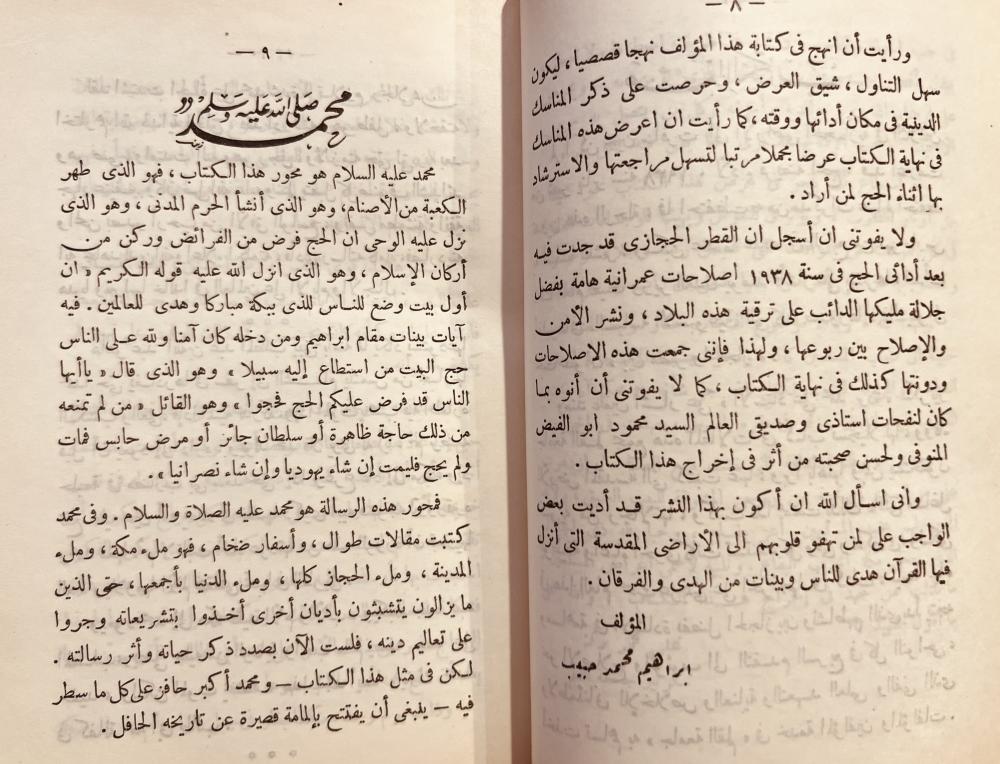 — ٨ —
ورأيت أن انهج فى كتابة هذا المؤلف نهجا قصصيا ، ليكون
سهل التناول ، شيق العرض ، وحرصت على ذكر المناسك
الدينية فى مكان أدائها ووقته ، كما رأيت ان اعرض هذه المناسك
فى نهاية الكتاب عرضا مجملا مرتبا لتسهل مراجعتها والاسترشاد
بها اثناء الحج لمن أراد .
ولا يفوتنى ان أسجل ان القطر الحجازى قد جدت فيه
بعد أدائى الحج فى سنة ١٩٣٨ اصلاحات عمرانية هامة بفضل
جلالة مليكها الدائب على ترقية هذه البلاد ، ونشر الأمن
والإصلاح بين ربوعها ، ولهذا فإننى جمعت هذه الاصلاحات
ودونتها كذلك فى نهاية الكتاب ، كما لا يفوتنى أن أنوه بما
كان لنفحات استاذى وصديقى العالم السيد محمود ابو الفيض
المنوفى ولحسن صحبته من أثر فى إخراج هذا الكتاب .
وانى اسأل الله ان أكون بهذا النشر قد أديت بعض
الواجب على لمن تهفو قلوبهم الى الأراضى المقدسة التى أنزل
فيها القرآن هدى للناس وبينات من الهدى والفرقان .
المؤلف
ابراهيم محمد حبيب
— ٩ —
محمد صلى الله عليه وسلم
محمد عليه السلام هو محور هذا الكتاب ، فهو الذى طهر
الكعبة من الأصنام ، وهو الذى أنشأ الحرم المدنى ، وهو الذى
نزل عليه الوحى ان الحج فرض من الفرائض وركن من
أركان الإسلام ، وهو الذى انزل الله عليه قوله الكريم « ان
أول بيت وضع للناس للذى ببكة مباركا وهدى للعالمين . فيه
آيات بينات مقام ابراهيم ومن دخله كان آمنا ولله على الناس
حج البيت من استطاع إليه سبيلا » وهو الذى قال « ياأيها
الناس قد فرض عليكم الحج فحجوا » وهو القائل « من لم تمنعه
من ذلك حاجة ظاهرة أو سلطان جائر أو مرض حابس فمات
ولم يحج فليمت إن شاء يهوديا وإن شاء نصرانيا » .
فمحور هذه الرسالة هو محمد عليه الصلاة والسلام . وفى محمد
كتبت مقالات طوال ، وأسفار ضخام ، فهو ملء مكة ، وملء
المدينة ، وملء الحجاز كلها ، وملء الدنيا بأجمعها ، حتى الذين
ما يزالون يتشبثون بأديان أخرى أخذوا بتشريعاته وجروا
على تعاليم دينه ، فلست الآن بصدد ذكر حياته وأثر رسالته .
لكن فى مثل هذا الكتاب — ومحمد أكبر حافز على كل ما سطر
فيه — ينبغى أن يفتتح بإلمامة قصيرة عن تاريخه الحافل .
* * *